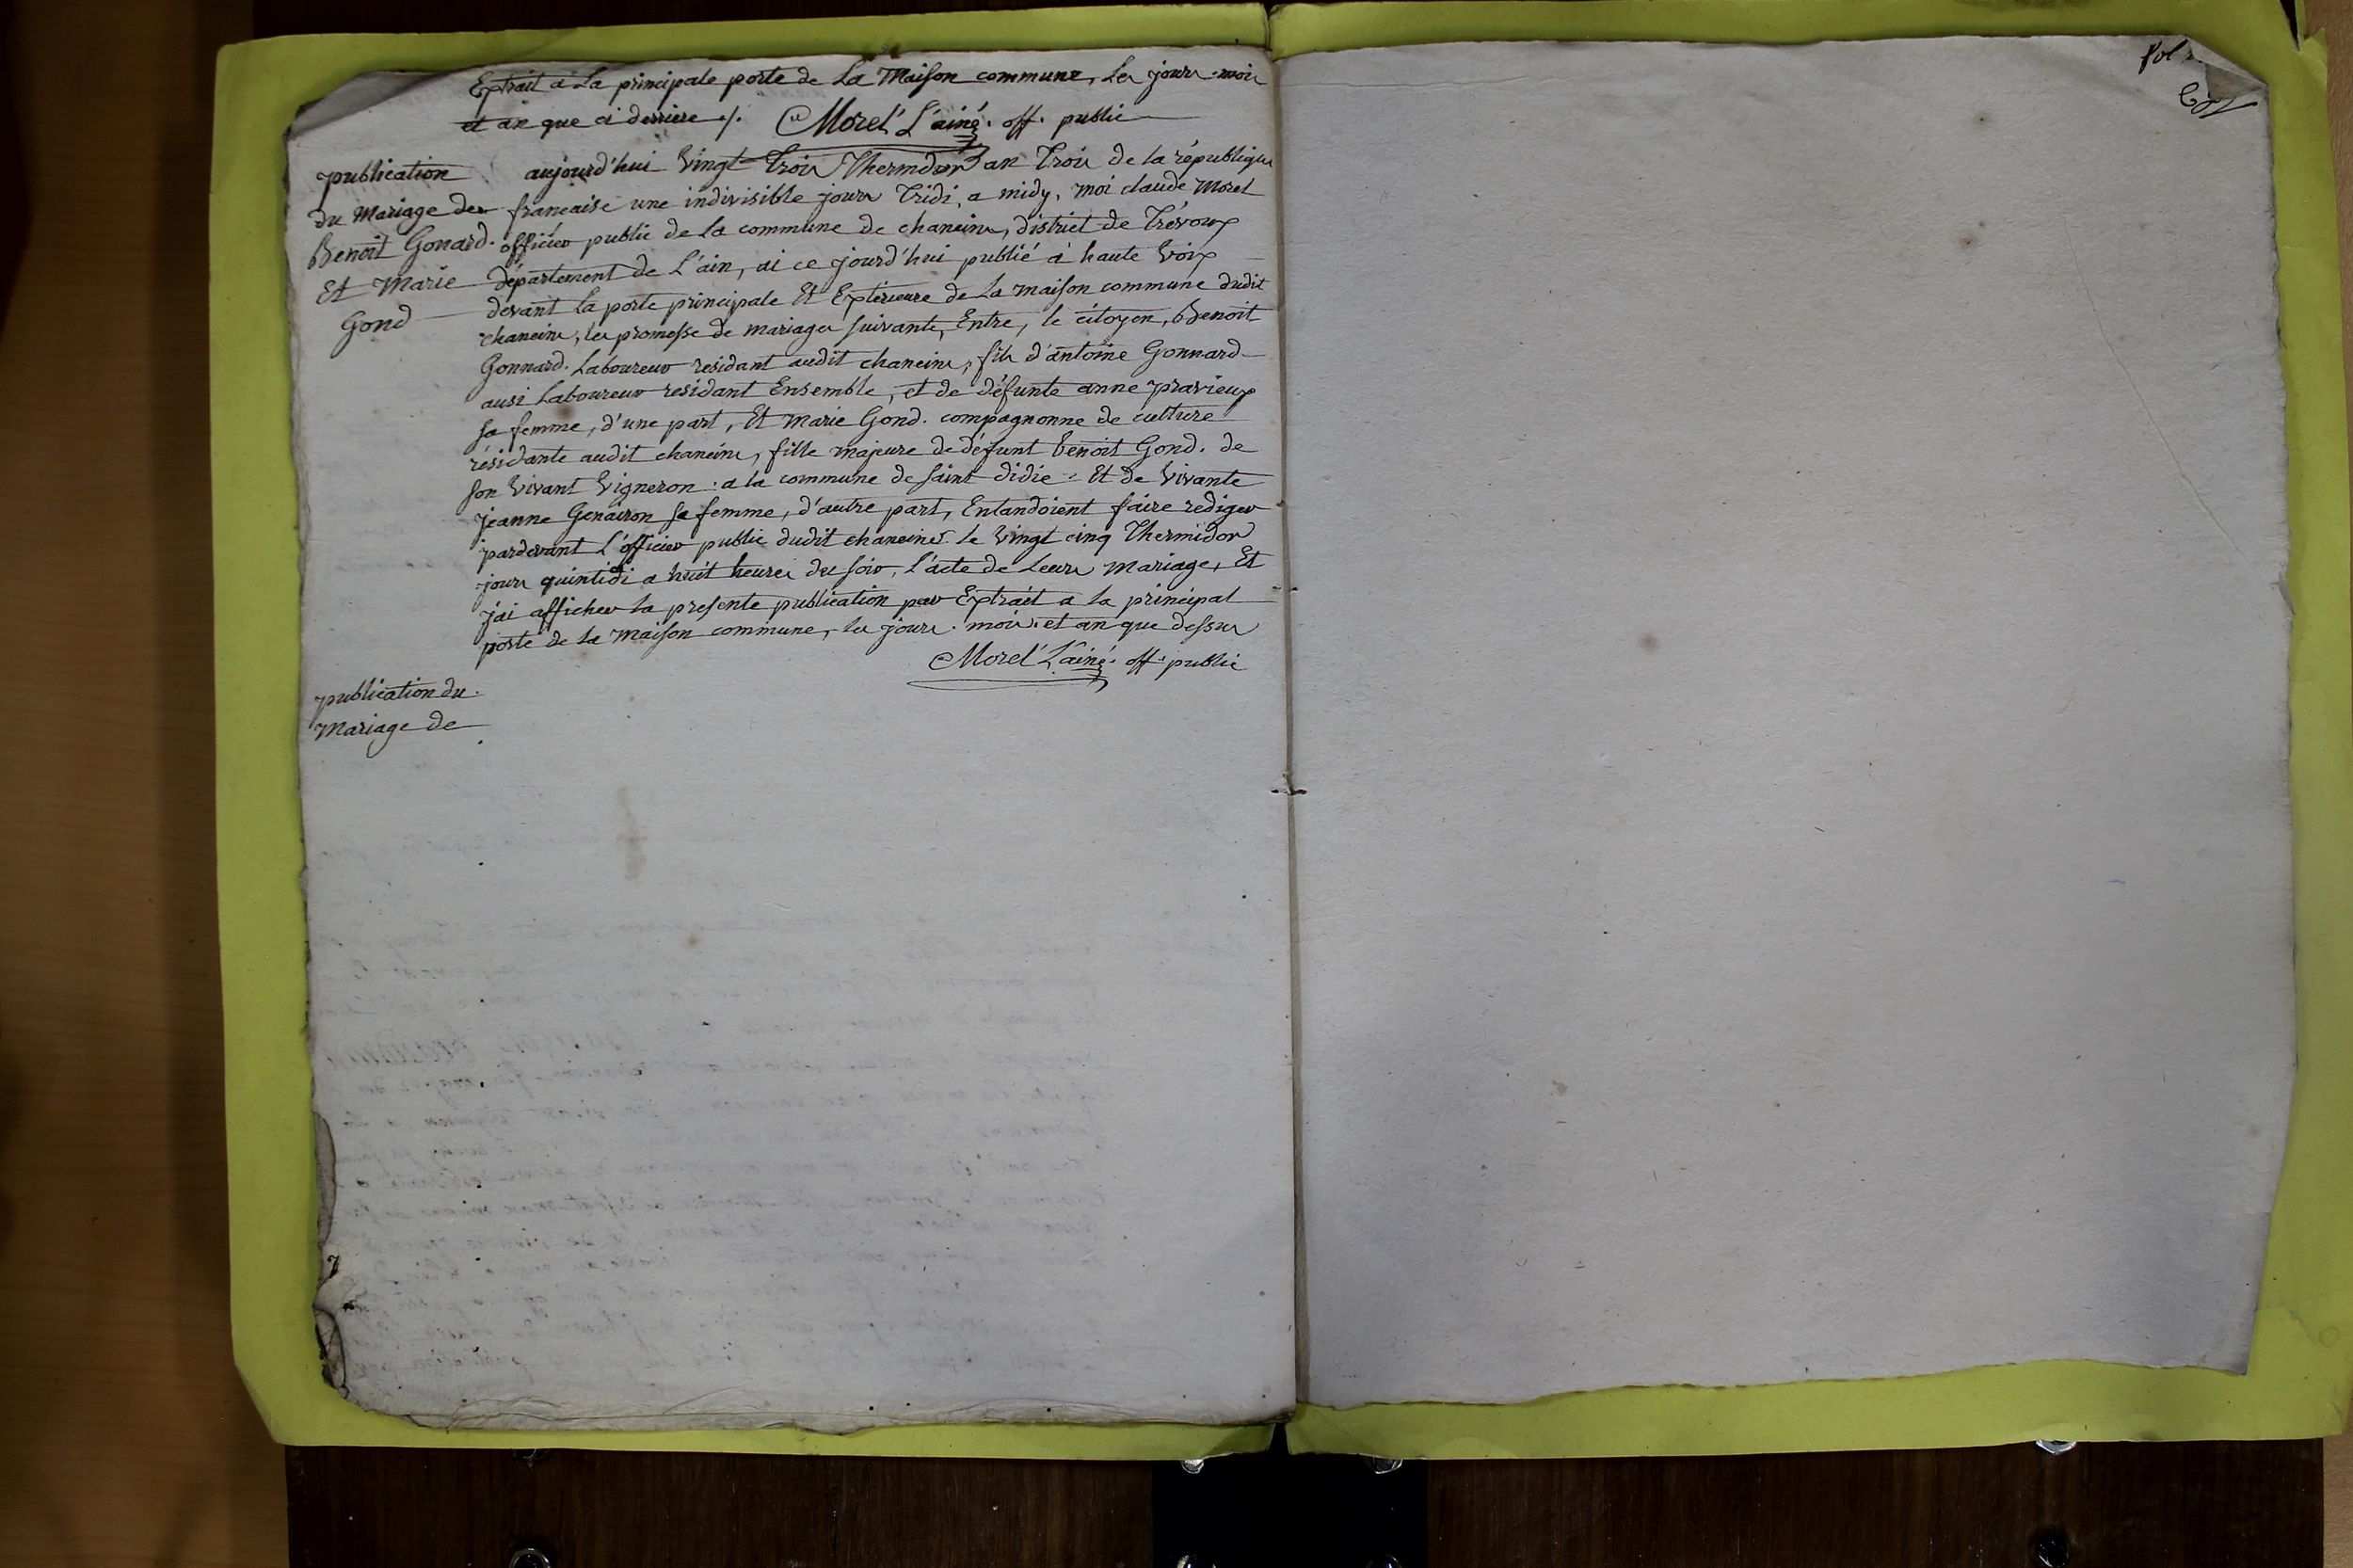 Extrait a La principale porte de La Maison commune, Les jours mois
et an que ci derriere ./. Morel L'ainé. off. public
publication
du Mariage des
Benoit Gonard.
Et Marie
Gond
aujourd'hui Vingt Trois Thermidor an Trois de la république
francaise une indivisible jours Tridi, a midy, moi claude Morel
officier public de La commune de chaneins, district de Trévoux
département de L'ain, ai ce jourd'hui publié à haute Voix
devant La porte principale Et Exterieure de La maison commune dudit
chaneins, les promesse de mariages suivante, Entre, le citoyen, Benoit
Gonnard. Laboureur residant audit chaneins, fils d'antoine Gonnard
ausi Laboureur residant Ensemble, et de défunte anne pravieux
sa femme, d'une part, Et Marie Gond. compagnonne de culture
résidante audit chaneins, fille majure de défunt benoit Gond. de
son Vivant Vigneron. a la commune de saint didie. Et de Vivante
Jeanne Genairon sa femme, d'autre part, Entandoient faire rediger
pardevant L'officier public dudit chaneins. le Vingt cinq Thermidor
jours quintidi a huit heures du soir, L'acte de Leurs Mariage, Et
j'ai afficher la presente publication par Extrait a la principal
porte de la maison commune, les jours. mois. et an que dessus
Morel L'ainé. off. public
publication du.
Mariage de
fol